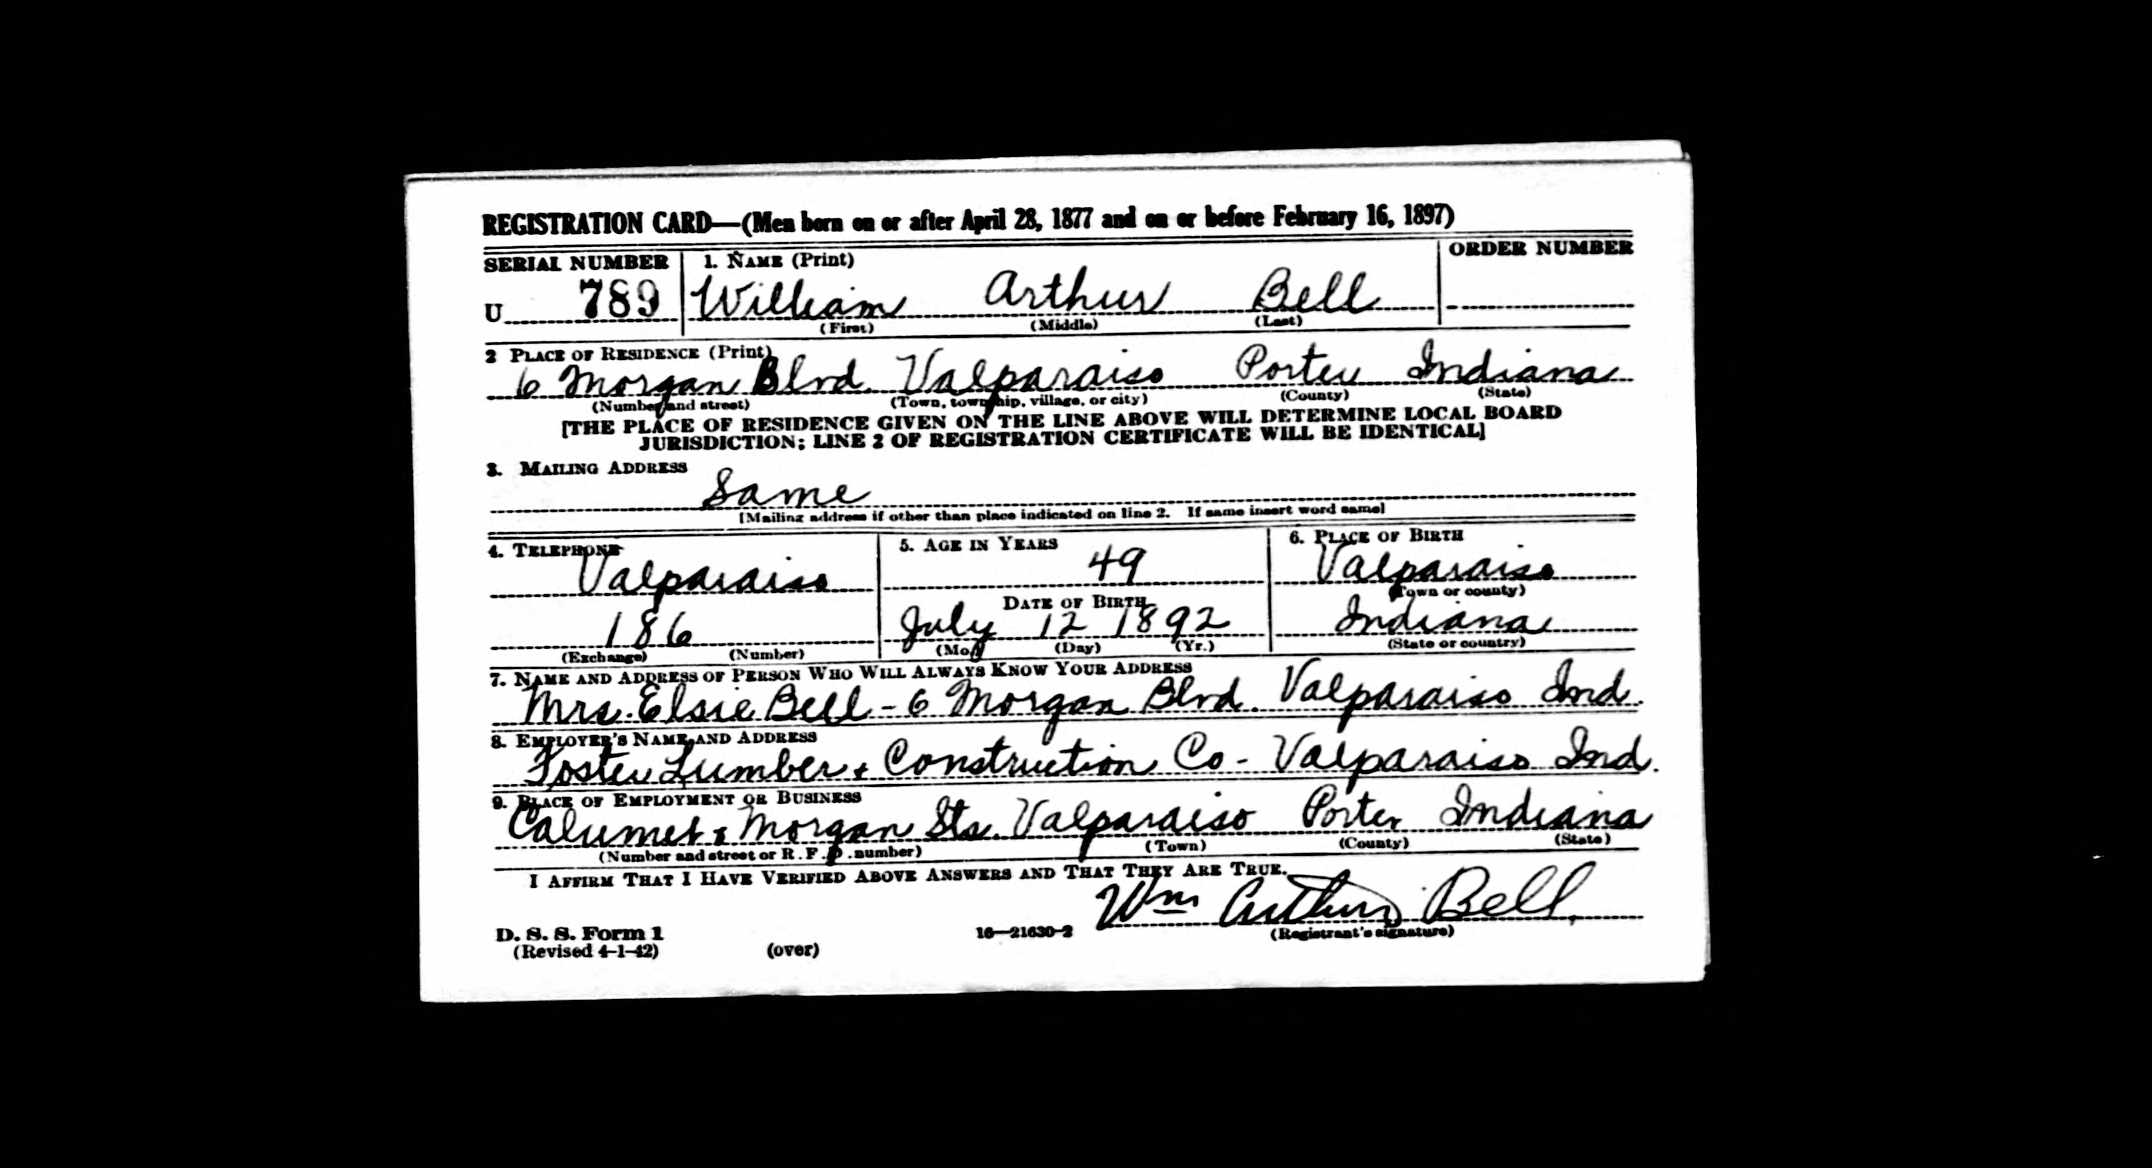 REGISTRATION CARD—(Men born on or after April 28, 1877 and on or before February 16, 1897)
SERIAL NUMBER 1. NAME (Print) ORDER NUMBER
U 789 William Arthur Bell
(First) (Middle) (Last)
2 PLACE OF RESIDENCE (Print)
6 Morgan Blvd. Valparaiso Porter Indiana
(Number and street) (Town, township, village, or city) (County) (State)
[THE PLACE OF RESIDENCE GIVEN ON THE LINE ABOVE WILL DETERMINE LOCAL BOARD
JURISDICTION; LINE 2 OF REGISTRATION CERTIFICATE WILL BE IDENTICAL]
3. MAILING ADDRESS
Same
[Mailing address if other than place indicated on line 2. If same insert word same]
4. TELEPHONE 5. AGE IN YEARS 6. PLACE OF BIRTH
Valparaiso 49 Valparaiso
DATE OF BIRTH (Town or county)
186 July 12 1892 Indiana
(Exchange) (Number) (Mo.) (Day) (Yr.) (State or country)
7. NAME AND ADDRESS OF PERSON WHO WILL ALWAYS KNOW YOUR ADDRESS
Mrs. Elsie Bell - 6 Morgan Blvd. Valparaiso Ind.
8. EMPLOYER'S NAME AND ADDRESS
Foster Lumber & Construction Co - Valparaiso Ind.
9. PLACE OF EMPLOYMENT OR BUSINESS
Calumet & Morgan Sts. Valparaiso Porter Indiana
(Number and street or R. F. D. number) (Town) (County) (State)
I AFFIRM THAT I HAVE VERIFIED ABOVE ANSWERS AND THAT THEY ARE TRUE.
Wm Arthur Bell
D. S. S. Form 1 16—21630-2 (Registrant's signature)
(Revised 4-1-42) (over)